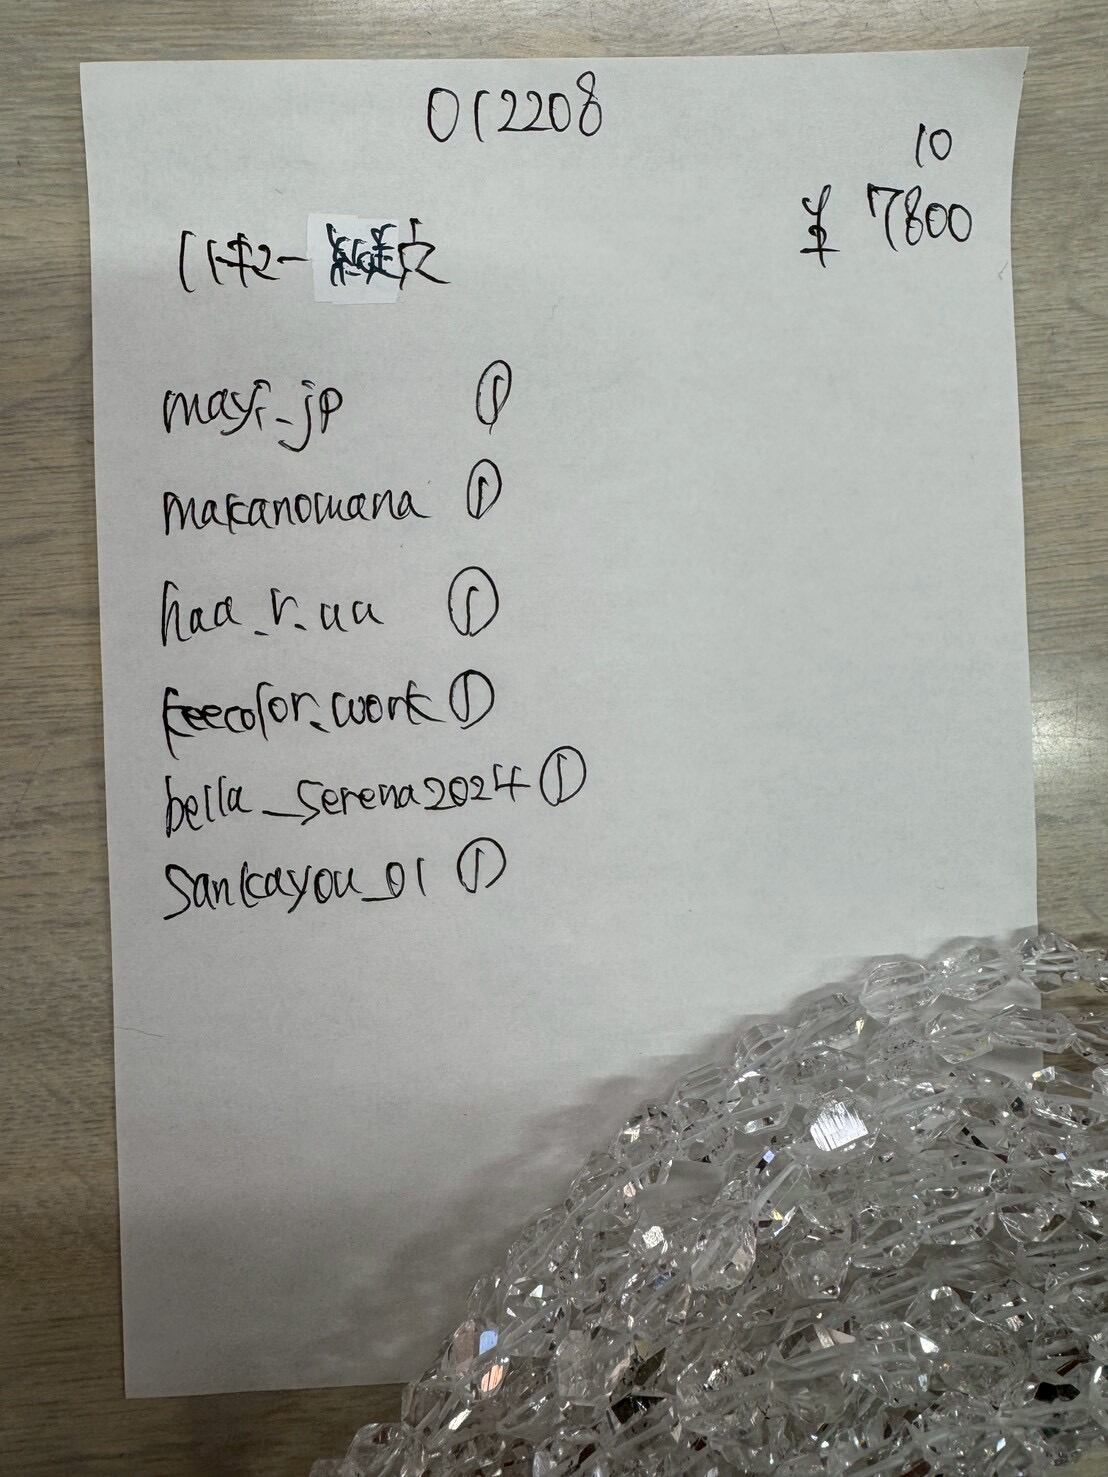 012208
10
¥ 7800
mayi_jp ①
makanowana ①
haa_r.uu ①
keecolor.work ①
bella_serena2024 ①
sankayou_01 ①